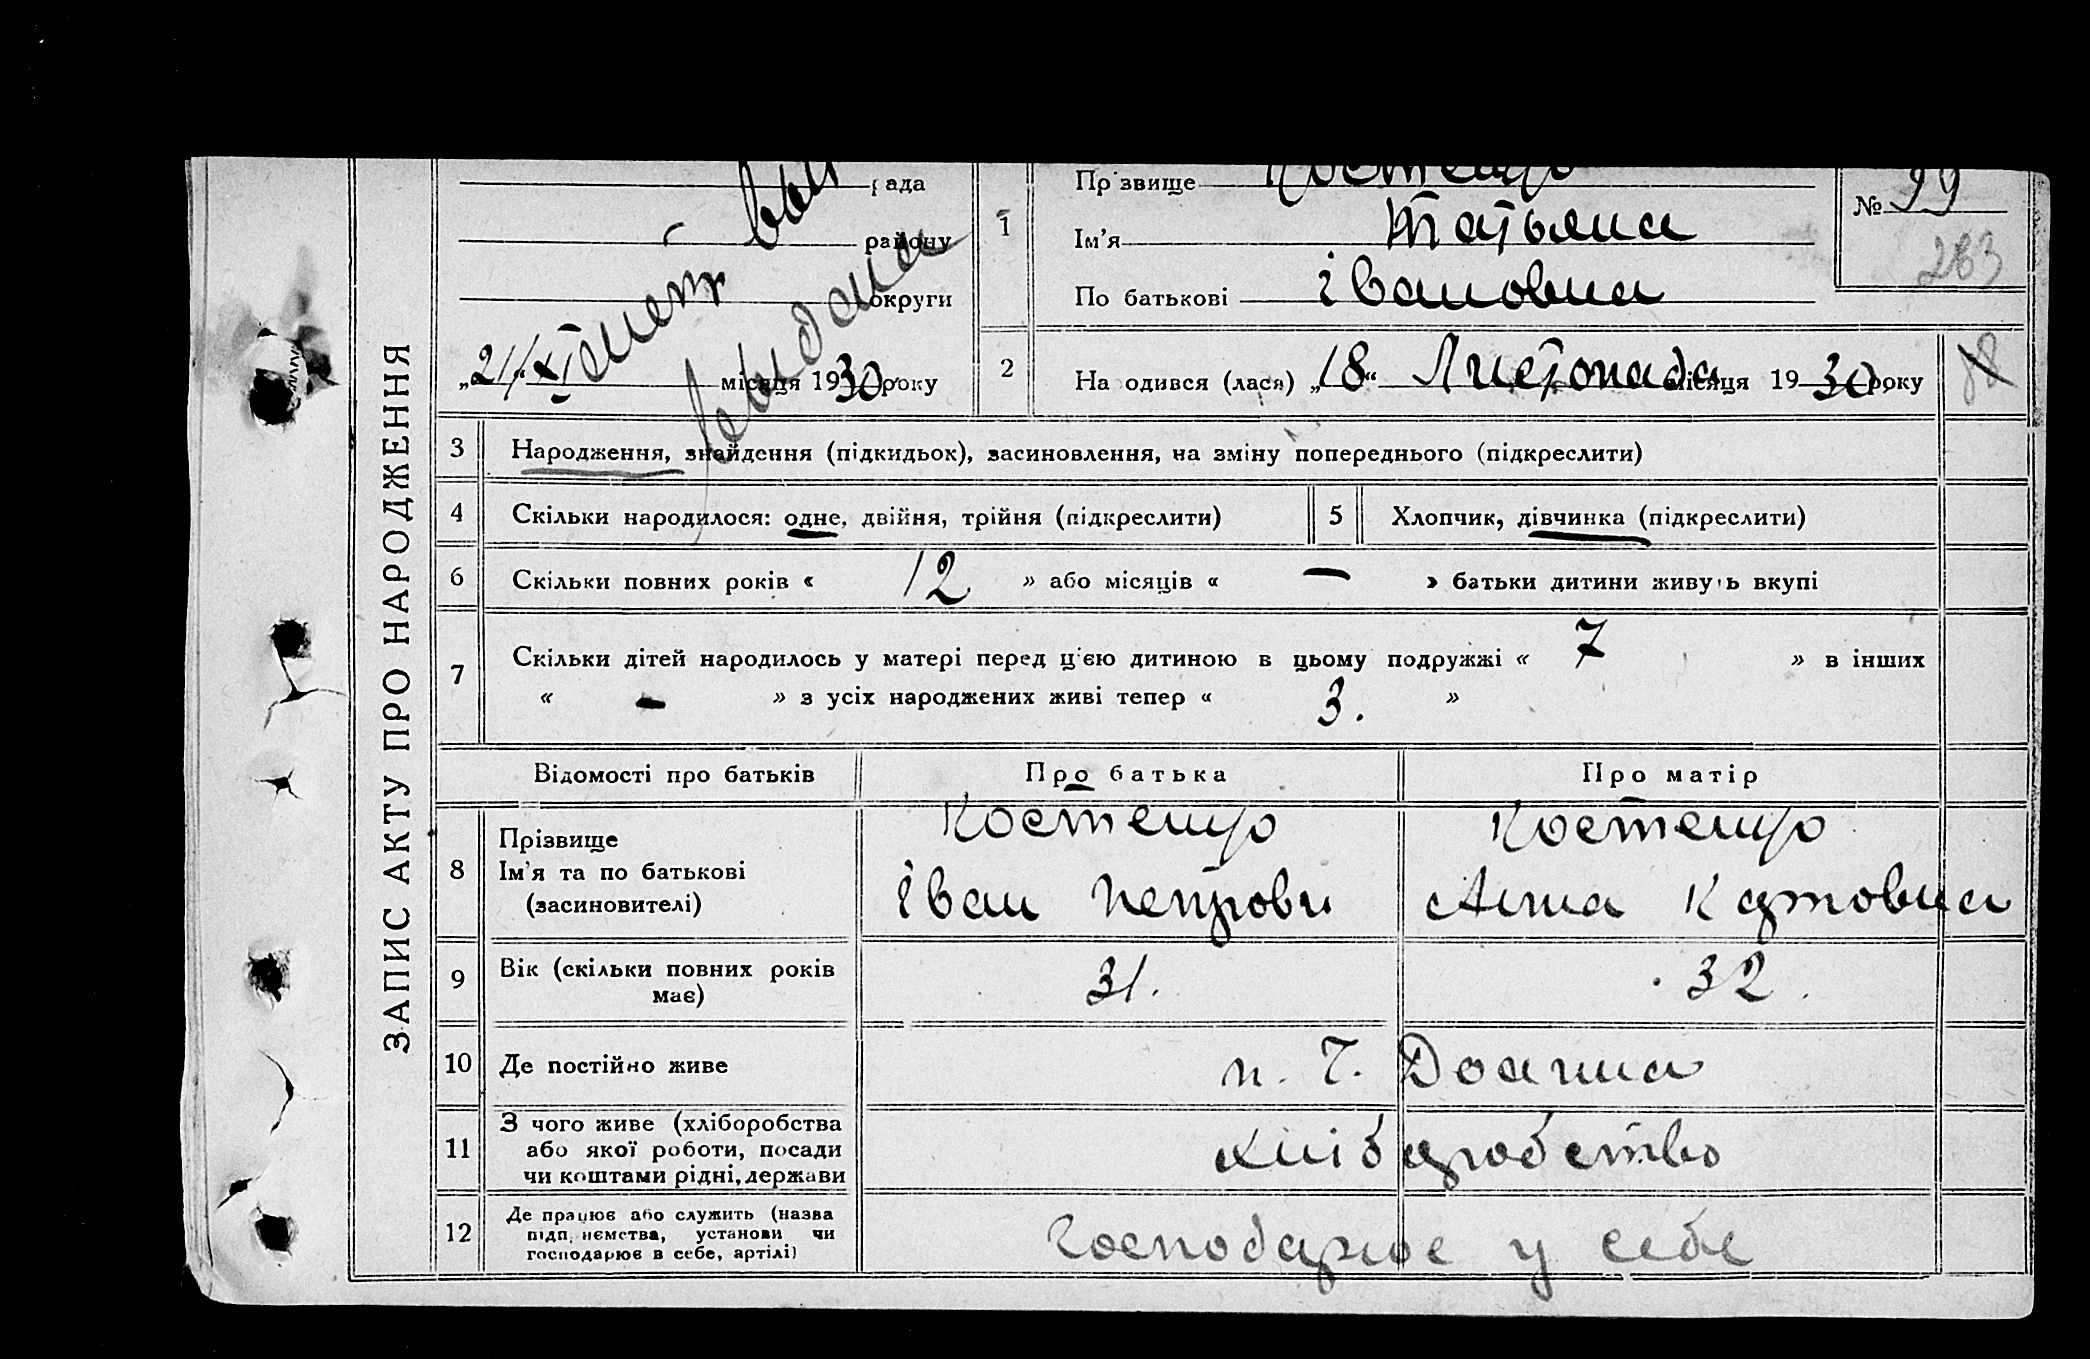 ЗАПИС АКТУ ПРО НАРОДЖЕННЯ
рада
району
округи
„21“ XI місяця 1930 року
видана
1
Прізвище
Ім’я Татьяна
По батькові Івановна
№ 99
263
2
На одився (лася) „18“ Листопада місяця 1930 року
3
Народження, знайдення (підкидьок), засиновлення, на зміну попереднього (підкреслити)
4
Скільки народилося: одне, двійня, трійня (підкреслити)
5
Хлопчик, дівчинка (підкреслити)
6
Скільки повних років « 12 » або місяців « — » батьки дитини живуть вкупі
7
Скільки дітей народилось у матері перед ц’єю дитиною в цьому подружжі « 7 » в інших
« - » з усіх народжених живі тепер « 3. »
Відомості про батьків
Про батька
Про матір
8
Прізвище
Ім’я та по батькові
(засиновителі)
Іван Петрови
Анна
9
Вік (скільки повних років
має)
31.
32.
10
Де постійно живе
11
З чого живе (хліборобства
або якої роботи, посади
чи коштами рідні, держави
хліборобство
12
Де працює або служить (назва
підприємства, установи чи
господарює в себе, артілі)
Господарює у себе